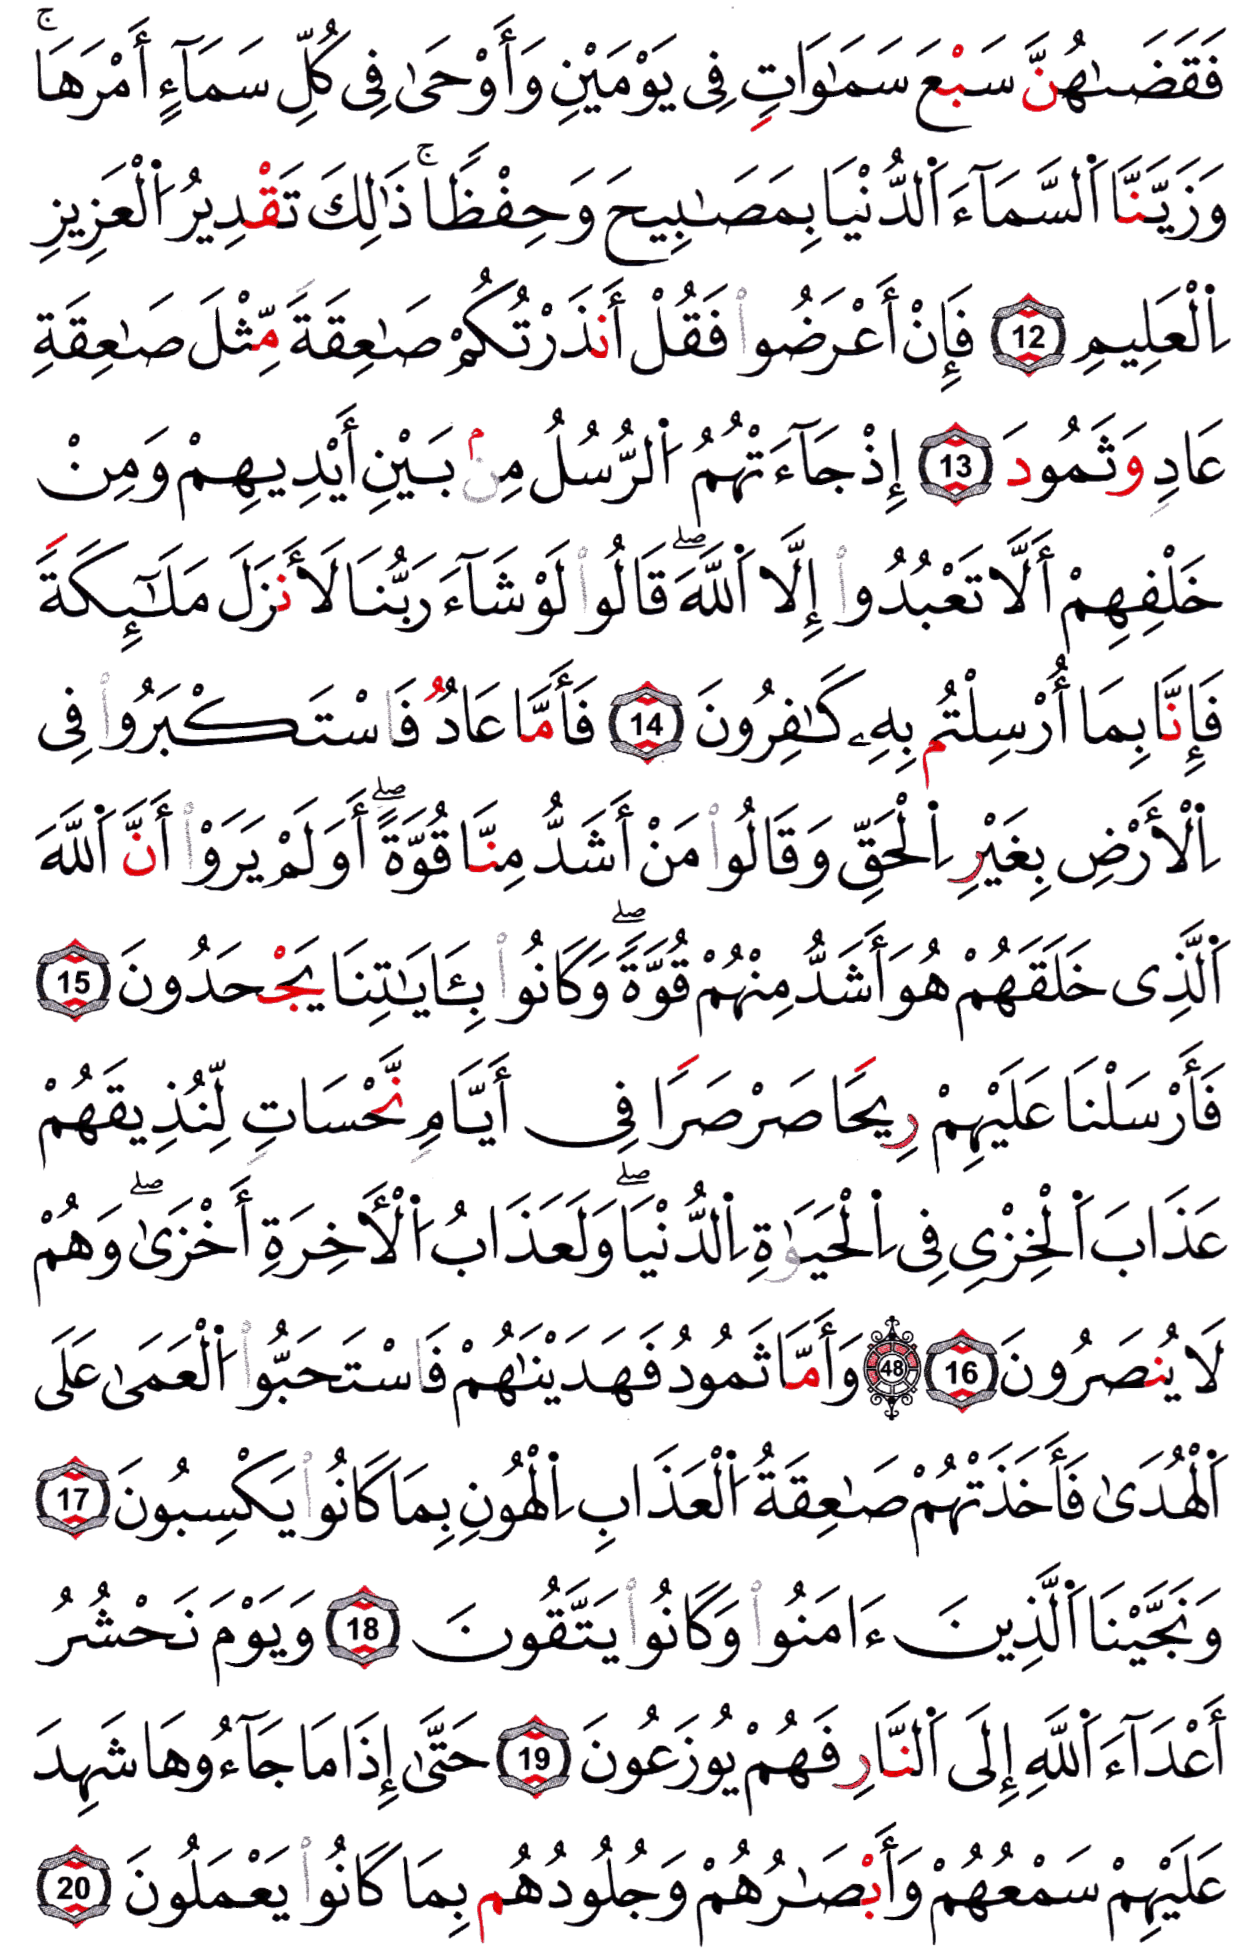 فَقَضَىٰهُنَّ سَبْعَ سَمَٰوَاتٍ فِى يَوْمَيْنِ وَأَوْحَىٰ فِى كُلِّ سَمَآءٍ أَمْرَهَا ۚ
وَزَيَّنَّا ٱلسَّمَآءَ ٱلدُّنْيَا بِمَصَٰبِيحَ وَحِفْظًا ۚ ذَٰلِكَ تَقْدِيرُ ٱلْعَزِيزِ
ٱلْعَلِيمِ 12 فَإِنْ أَعْرَضُوا۟ فَقُلْ أَنذَرْتُكُمْ صَٰعِقَةً مِّثْلَ صَٰعِقَةِ
عَادٍ وَثَمُودَ 13 إِذْ جَآءَتْهُمُ ٱلرُّسُلُ مِنۢ بَيْنِ أَيْدِيهِمْ وَمِنْ
خَلْفِهِمْ أَلَّا تَعْبُدُوا۟ إِلَّا ٱللَّهَ ۖ قَالُوا۟ لَوْ شَآءَ رَبُّنَا لَأَنزَلَ مَلَٰٓئِكَةً
فَإِنَّا بِمَا أُرْسِلْتُم بِهِۦ كَٰفِرُونَ 14 فَأَمَّا عَادٌ فَٱسْتَكْبَرُوا۟ فِى
ٱلْأَرْضِ بِغَيْرِ ٱلْحَقِّ وَقَالُوا۟ مَنْ أَشَدُّ مِنَّا قُوَّةً ۖ أَوَلَمْ يَرَوْا۟ أَنَّ ٱللَّهَ
ٱلَّذِى خَلَقَهُمْ هُوَ أَشَدُّ مِنْهُمْ قُوَّةً ۖ وَكَانُوا۟ بِـَٔايَٰتِنَا يَجْحَدُونَ 15
فَأَرْسَلْنَا عَلَيْهِمْ رِيحًا صَرْصَرًا فِى أَيَّامٍ نَّحْسَاتٍ لِّنُذِيقَهُمْ
عَذَابَ ٱلْخِزْىِ فِى ٱلْحَيَوٰةِ ٱلدُّنْيَا ۖ وَلَعَذَابُ ٱلْأَخِرَةِ أَخْزَىٰ ۖ وَهُمْ
لَا يُنصَرُونَ 16 48 وَأَمَّا ثَمُودُ فَهَدَيْنَٰهُمْ فَٱسْتَحَبُّوا۟ ٱلْعَمَىٰ عَلَى
ٱلْهُدَىٰ فَأَخَذَتْهُمْ صَٰعِقَةُ ٱلْعَذَابِ ٱلْهُونِ بِمَا كَانُوا۟ يَكْسِبُونَ 17
وَنَجَّيْنَا ٱلَّذِينَ ءَامَنُوا۟ وَكَانُوا۟ يَتَّقُونَ 18 وَيَوْمَ نَحْشُرُ
أَعْدَآءَ ٱللَّهِ إِلَى ٱلنَّارِ فَهُمْ يُوزَعُونَ 19 حَتَّىٰ إِذَا مَا جَآءُوهَا شَهِدَ
عَلَيْهِمْ سَمْعُهُمْ وَأَبْصَٰرُهُمْ وَجُلُودُهُم بِمَا كَانُوا۟ يَعْمَلُونَ 20